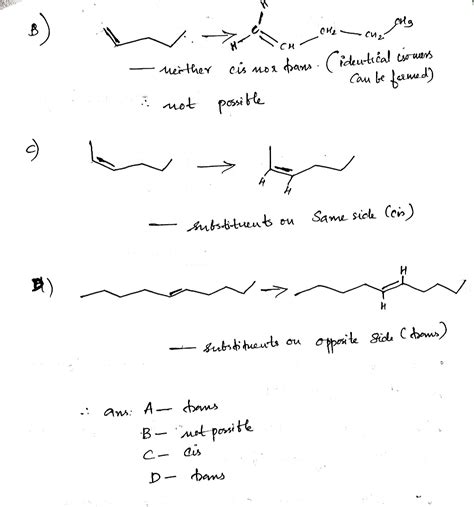 B)
H
H
C
CH
CH2
CH2
CH3
— neither cis nor trans. (identical isomers
can be formed)
∴ not possible
C)
H H
— substituents on same side (cis)
D)
H
H
— substituents on opposite side (trans)
∴ ans: A — trans
B — not possible
C — cis
D — trans